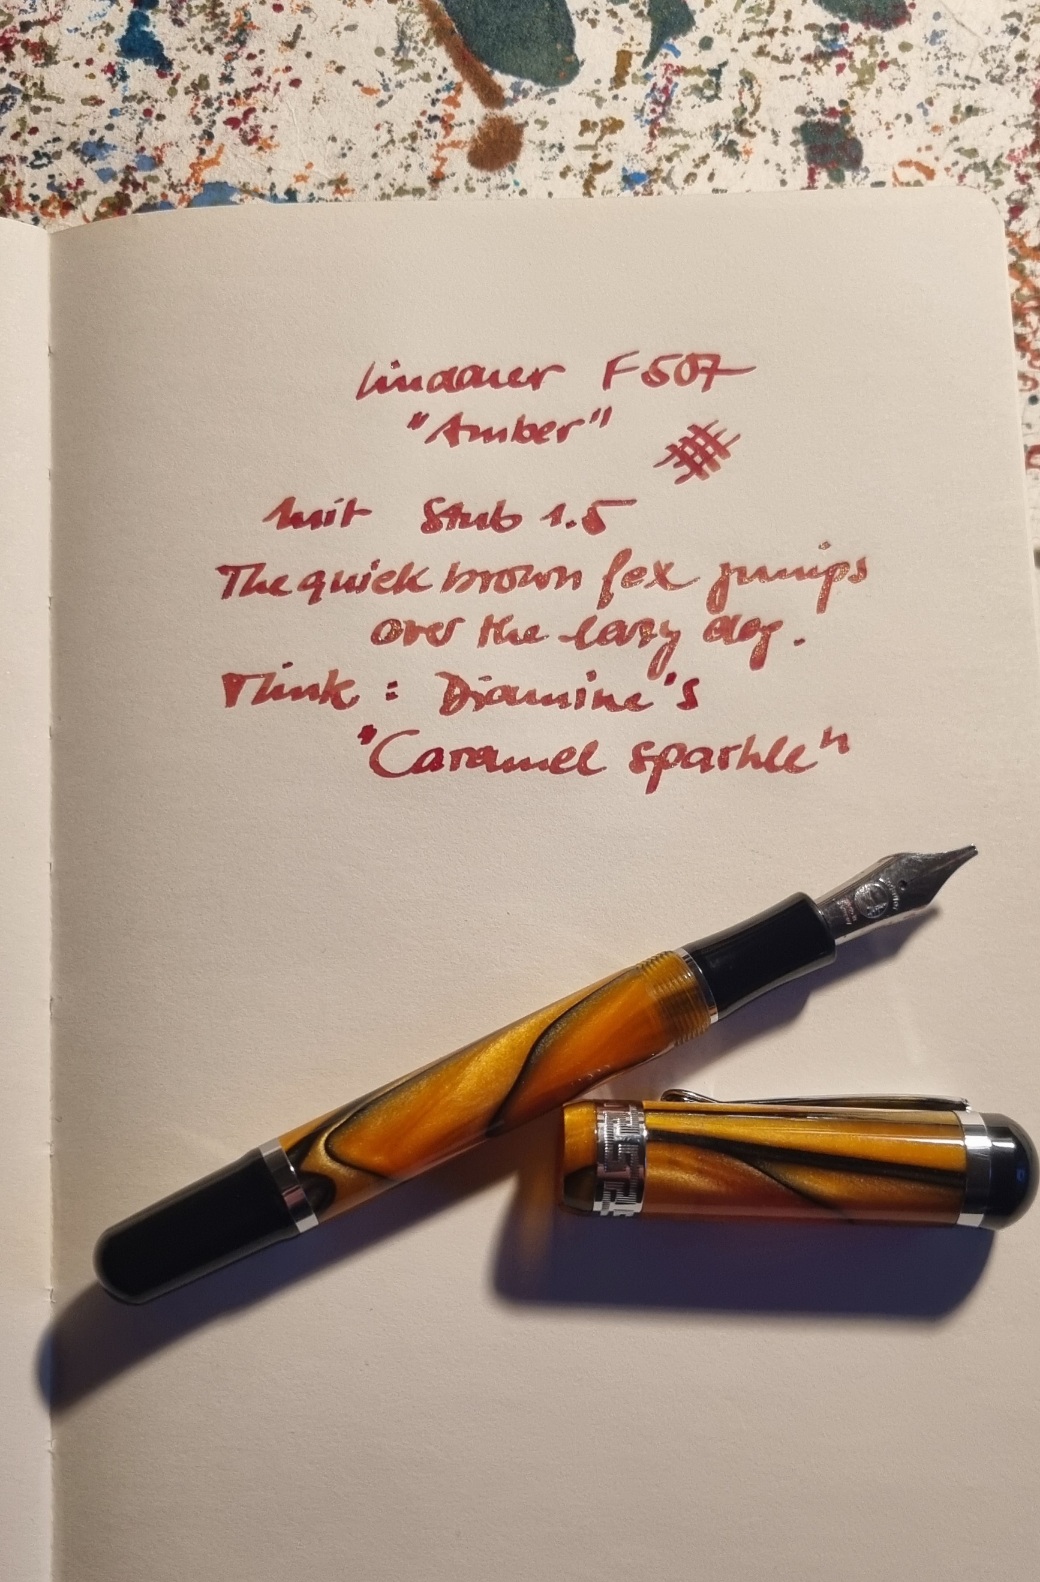 Lindauer F507
"Amber"
mit Stub 1.5
The quick brown fox jumps
over the lazy dog.
Think : Diamine's
"Caramel sparkle"